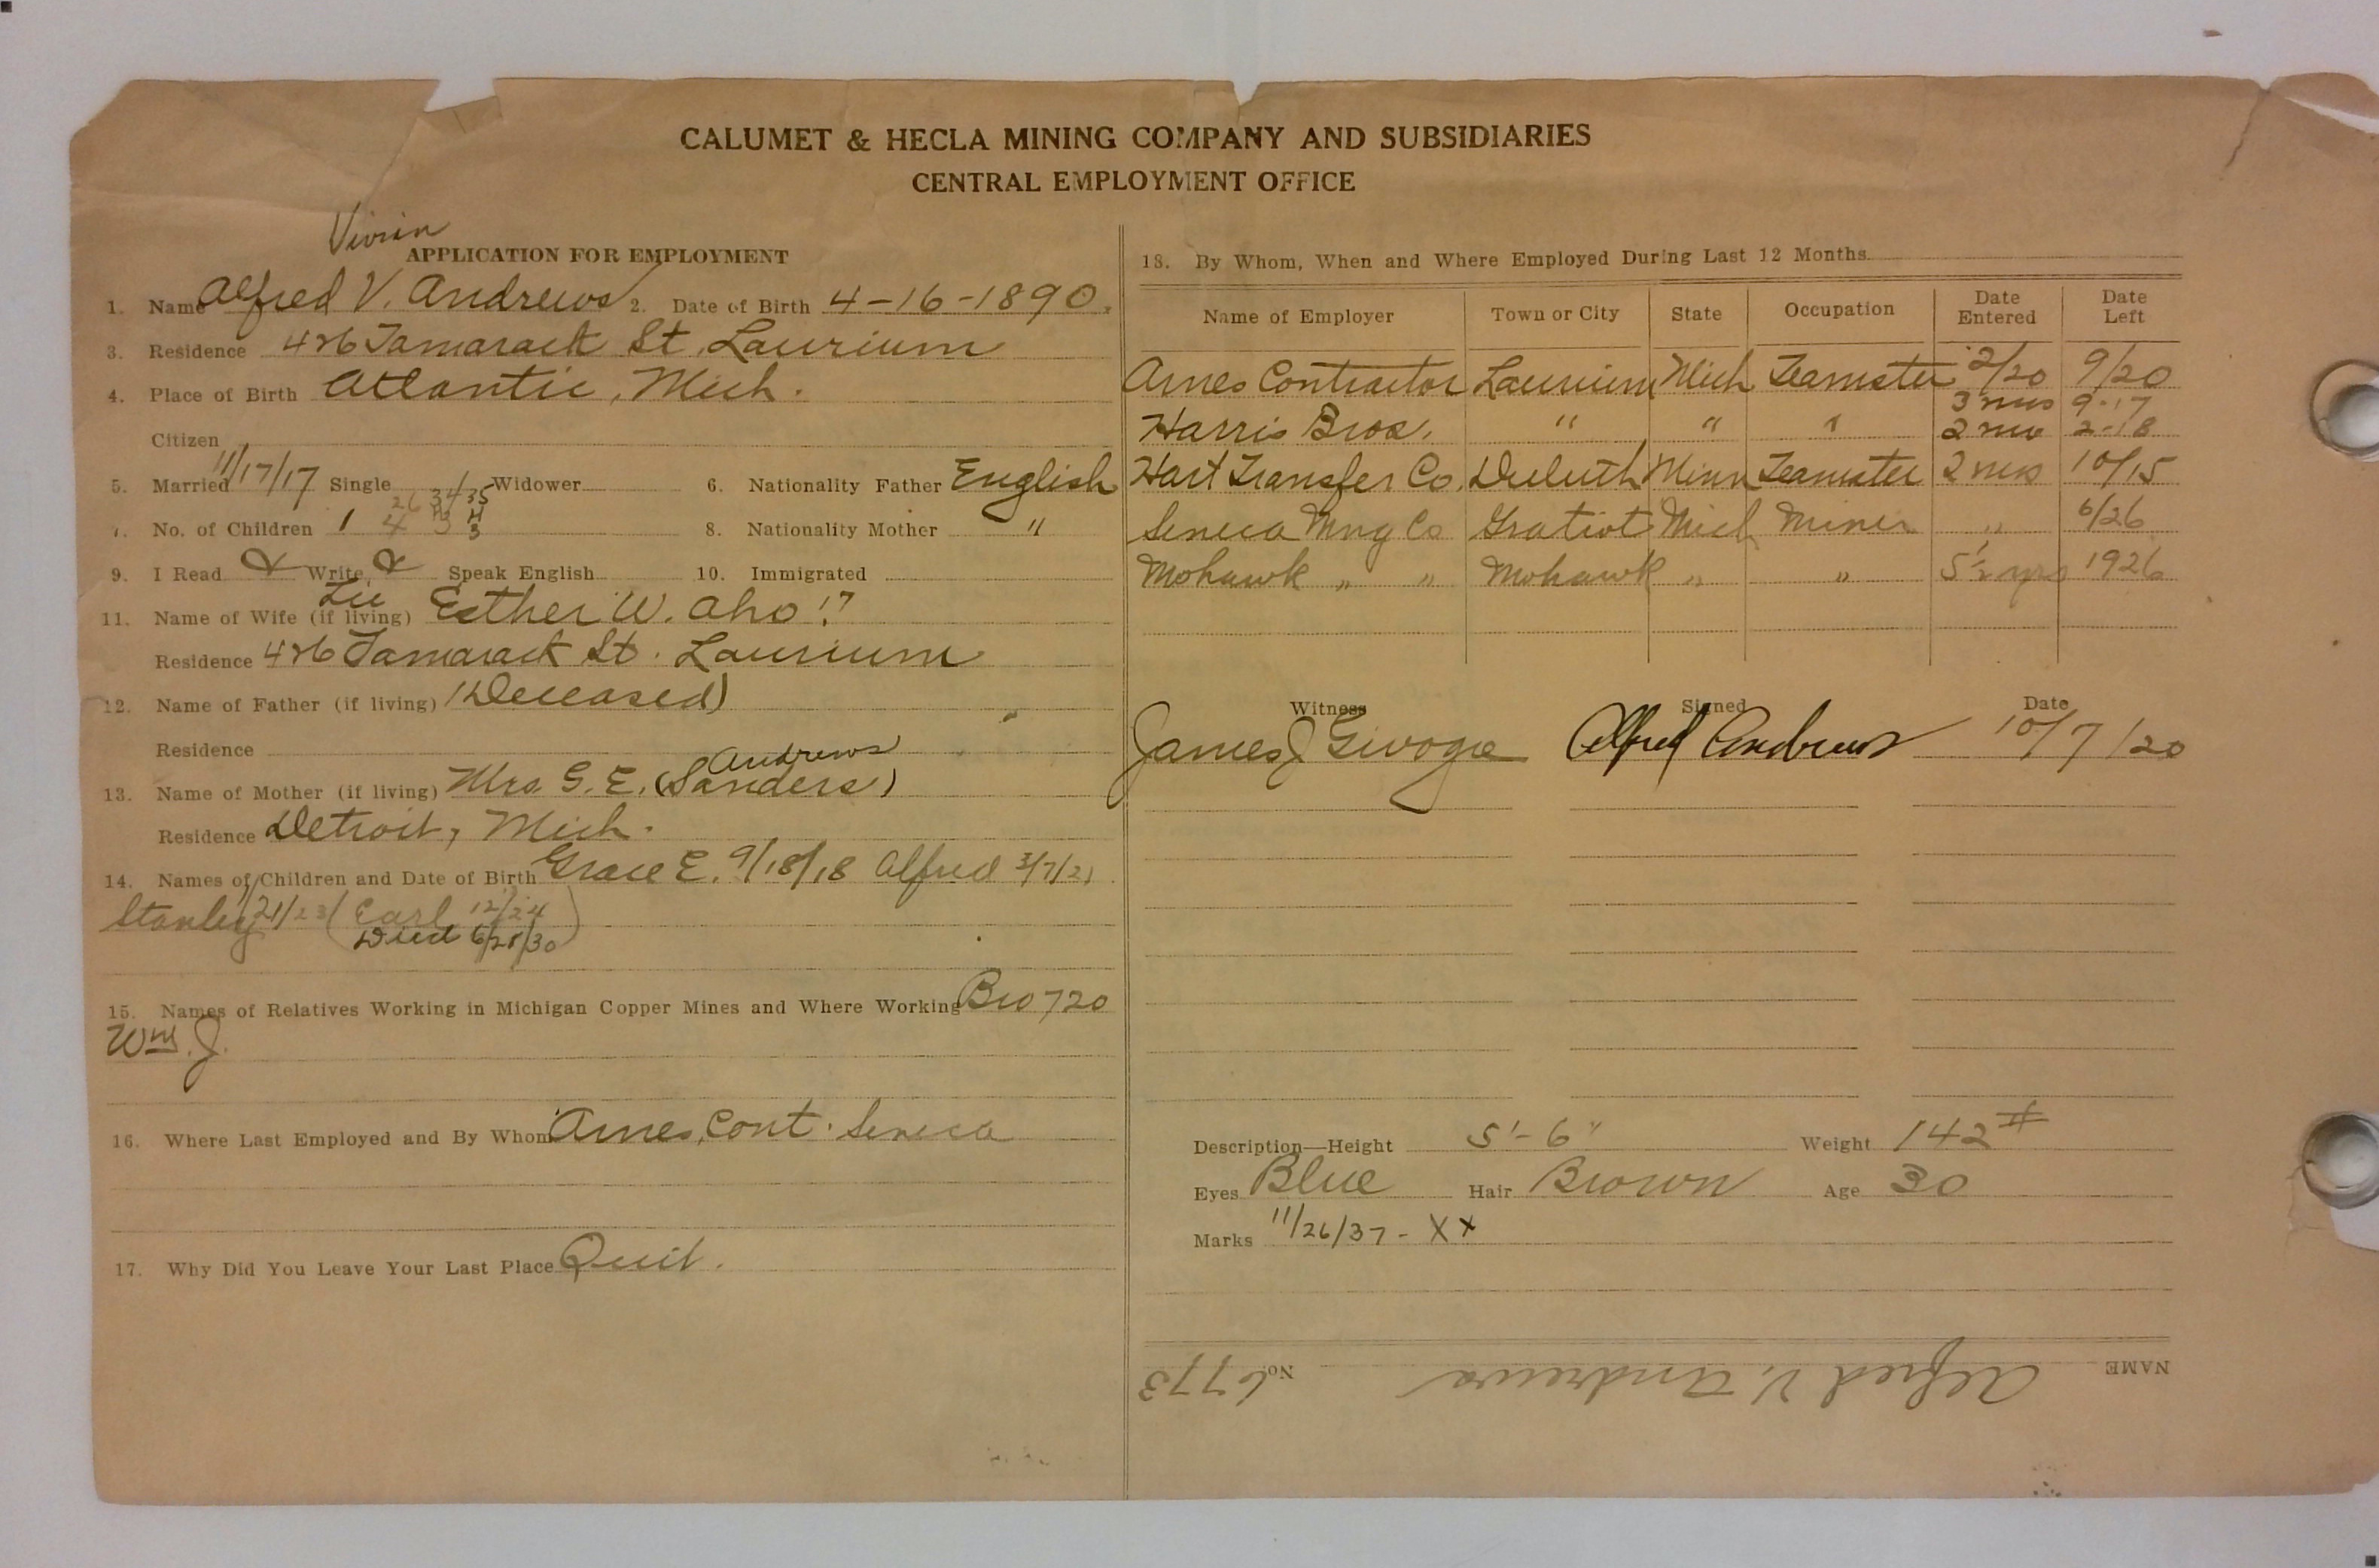 CALUMET & HECLA MINING COMPANY AND SUBSIDIARIES
CENTRAL EMPLOYMENT OFFICE
Vivian
APPLICATION FOR EMPLOYMENT
1. Name Alfred V. Andrews 2. Date of Birth 4-16-1890.
3. Residence 426 Tamarack St. Laurium
4. Place of Birth Atlantic, Mich.
Citizen
5. Married 11/17/17 Single Widower 6. Nationality Father English
26 34 35
7. No. of Children 1 4 3 3 8. Nationality Mother "
9. I Read Write Speak English 10. Immigrated
11. Name of Wife (if living) Esther W. Aho
Residence 426 Tamarack St. Laurium
12. Name of Father (if living) (Deceased)
Residence
Andrews
13. Name of Mother (if living) Mrs. G. E. (Sanders)
Residence Detroit, Mich.
14. Names of Children and Date of Birth Grace E. 9/18/18 Alfred 3/7/21
Stanley /21/23 (Earl 12/24
Died 6/28/30)
15. Names of Relatives Working in Michigan Copper Mines and Where Working Bro 720
Wm. J.
16. Where Last Employed and By Whom Ames, Cont. Seneca
17. Why Did You Leave Your Last Place Quit.
18. By Whom, When and Where Employed During Last 12 Months
Name of Employer Town or City State Occupation Date Entered Date Left
Ames Contractor Laurium Mich Teamster 2/20 9/20
3 mos 9-17
Harris Bros. " " " 2 mo 2-18
Hart Transfer Co. Duluth Minn Teamster 2 mos 10/15
Seneca Mng Co Gratiot Mich Miner " 6/26
Mohawk " " Mohawk " " 5½ yrs 1926
Witness Signed Date
James J Alfred Andrews 10/7/20
Description—Height 5'-6" Weight 142#
Eyes Blue Hair Brown Age 30
Marks 11/26/37 - XX
NAME Alfred V. Andrews No. 6773